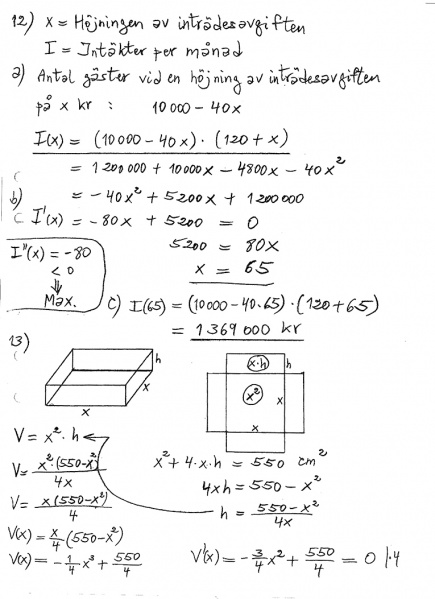 12) x = Höjningen av inträdesavgiften
I = Intäkter per månad
a) Antal gäster vid en höjning av inträdesavgiften
på x kr : 10 000 - 40x
I(x) = (10 000 - 40x) · (120 + x)
= 1 200 000 + 10 000x - 4800x - 40x²
b) = -40x² + 5200x + 1 200 000
I'(x) = -80x + 5200 = 0
5200 = 80x
x = 65
I''(x) = -80
< 0
⇓
Max.
c) I(65) = (10 000 - 40·65) · (120 + 65)
= 1 369 000 kr
13)
h
x
x
x·h h
x² x
x
V = x² · h
V = x²·(550-x²) / 4x
V = x(550-x²) / 4
V(x) = x/4 (550-x²)
V(x) = -1/4 x³ + 550/4
x² + 4·x·h = 550 cm²
4xh = 550 - x²
h = 550-x² / 4x
V'(x) = -3/4 x² + 550/4 = 0 |·4